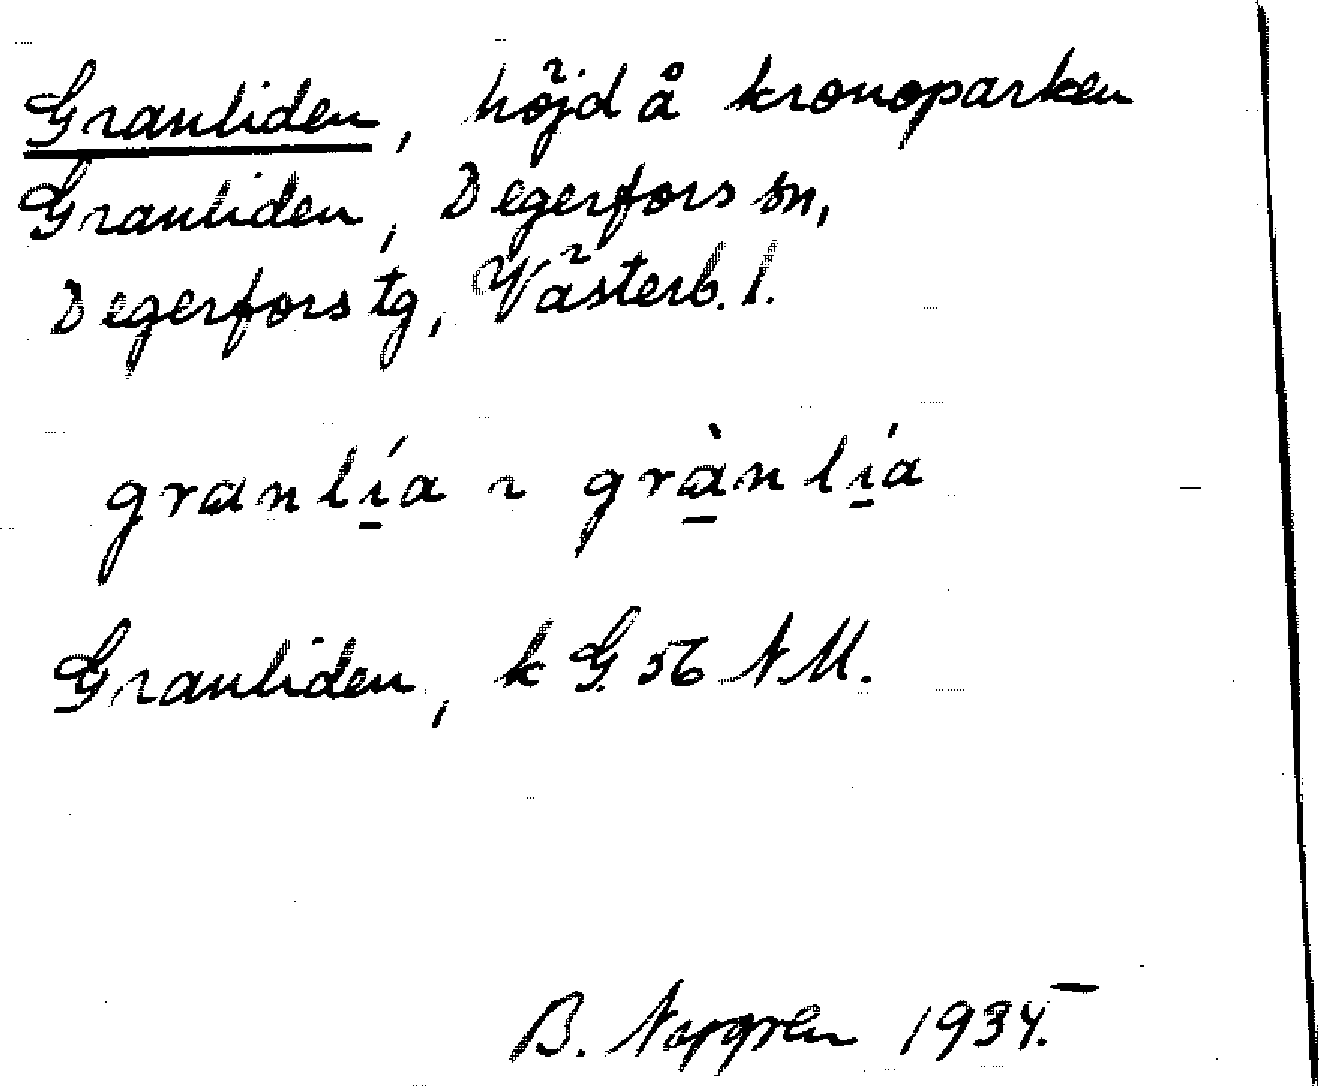 Granliden, höjd å kronoparken
Granliden, Degerfors sn,
Degerfors tg, Västerb. l.
granlía ~ grànlía
Granliden, k G. 56 NM.
B. 1934.